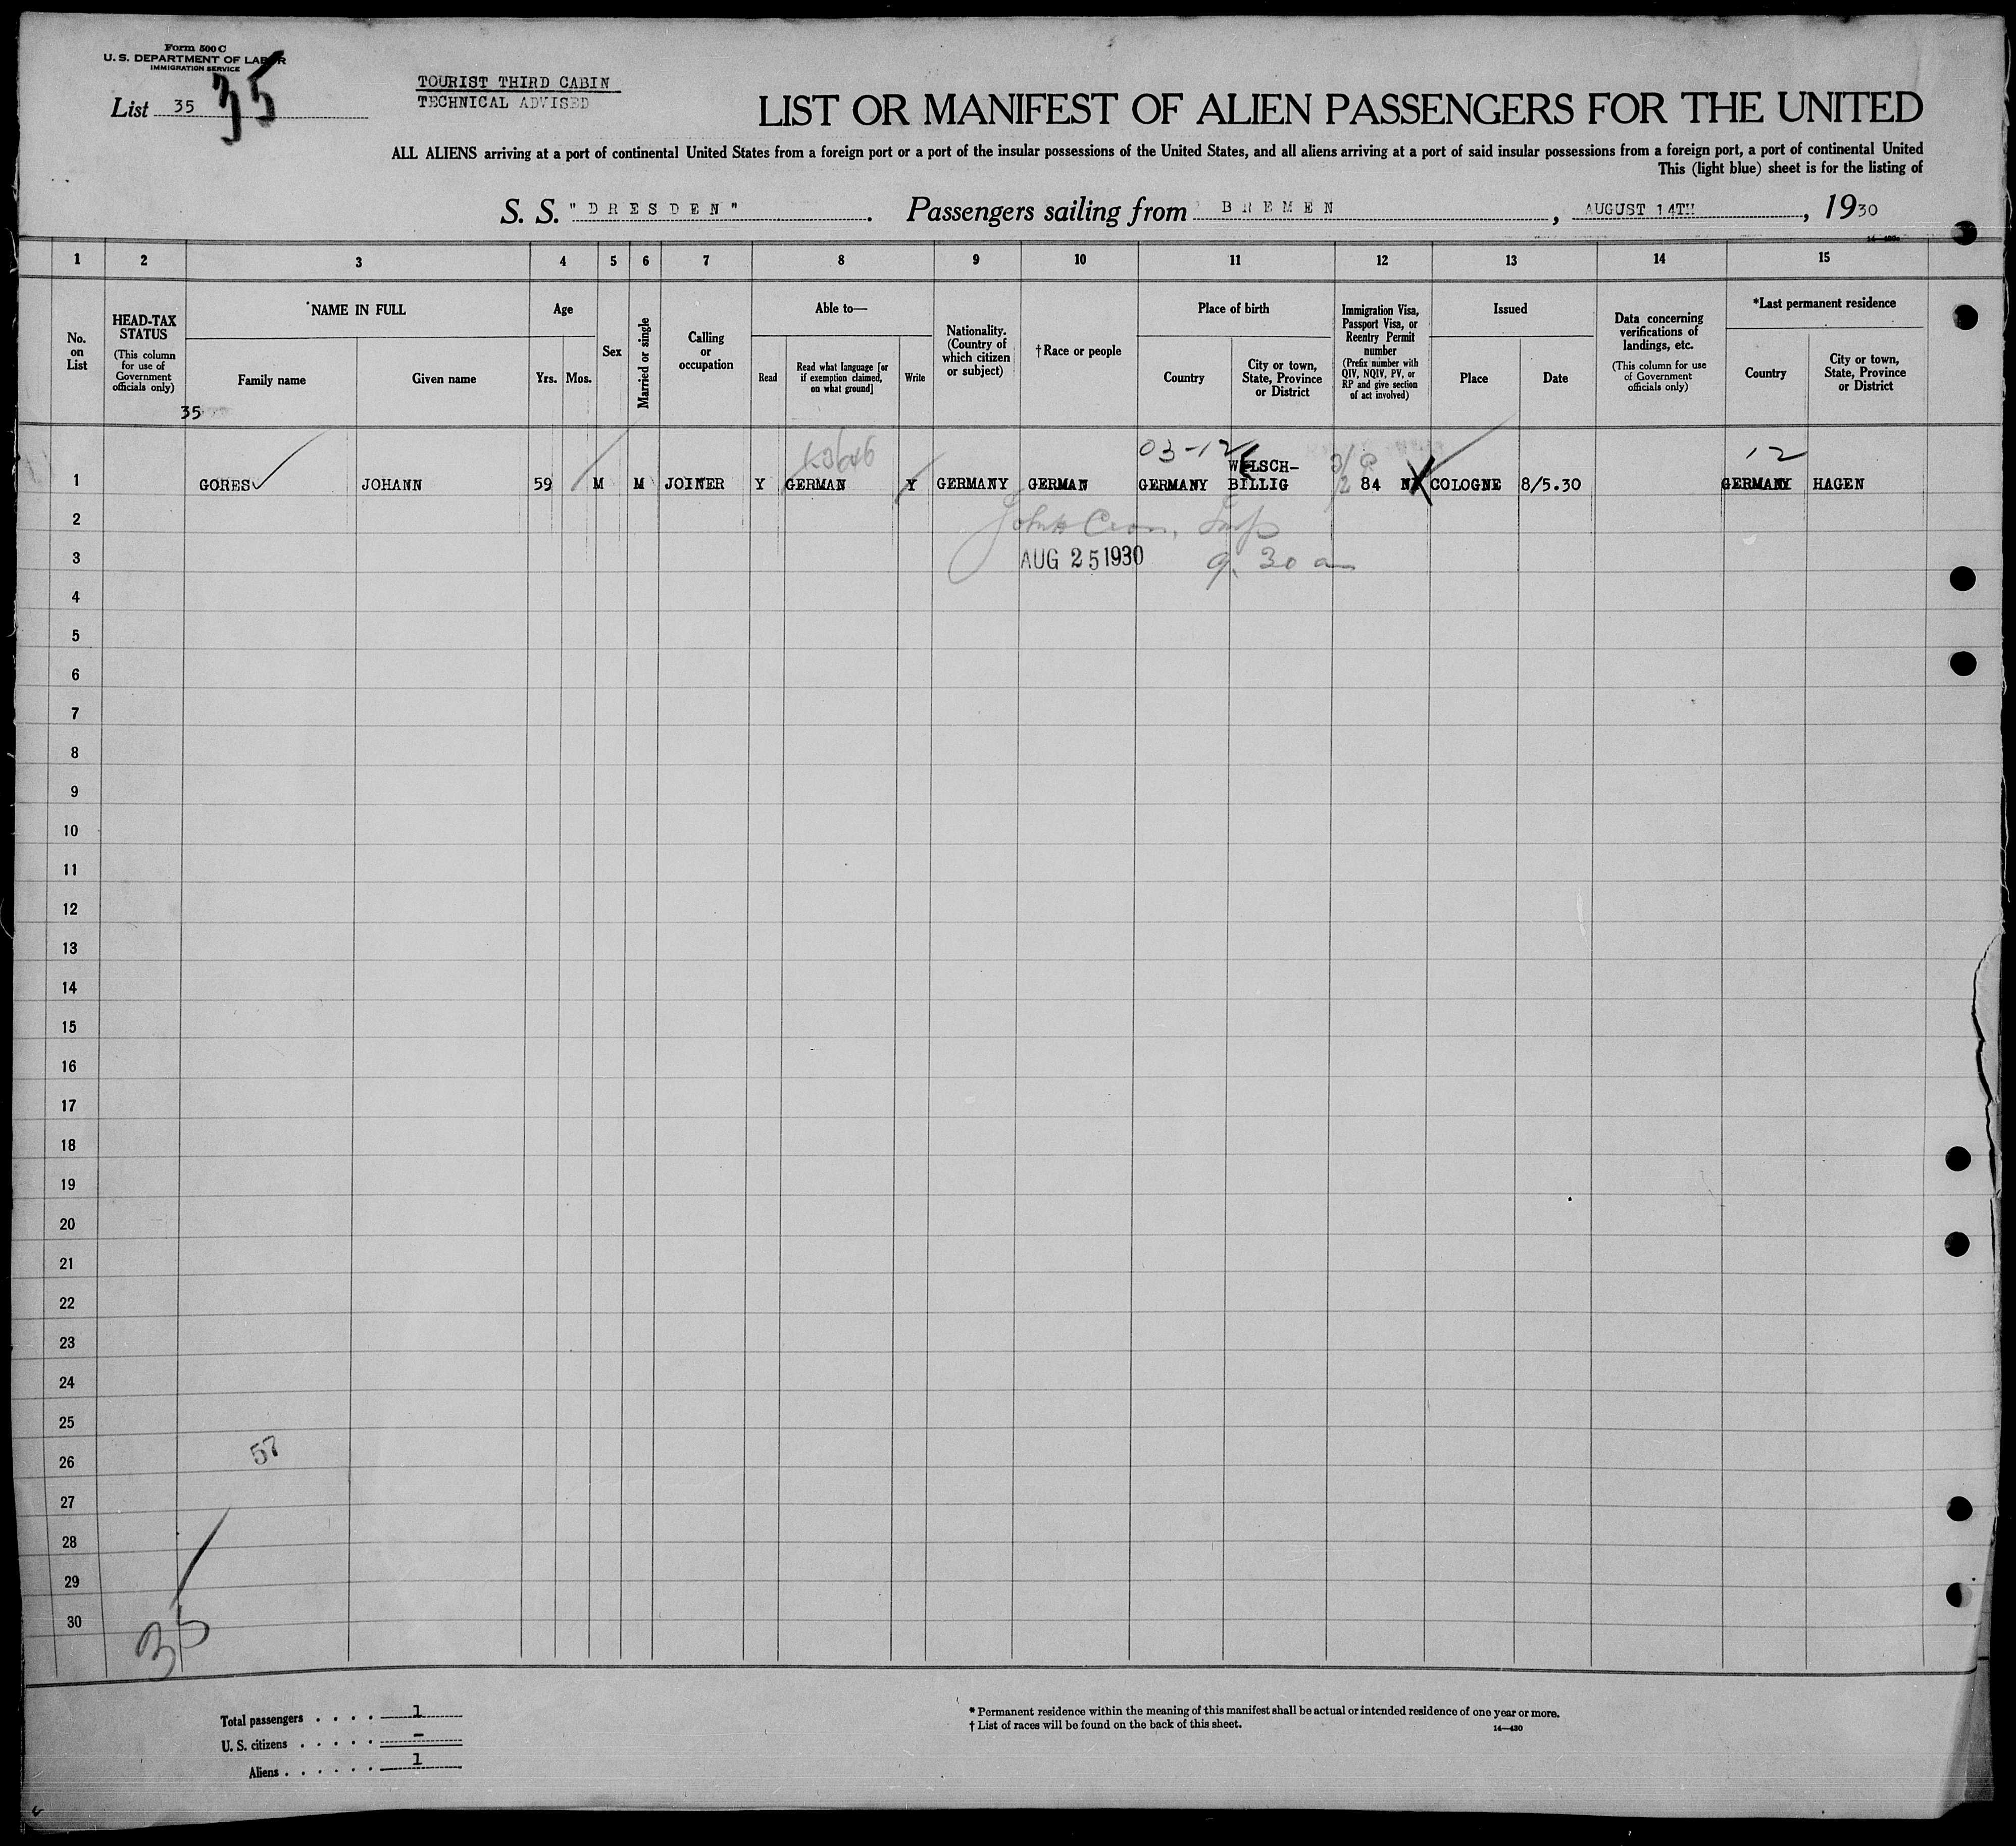 Form 500 C
U. S. DEPARTMENT OF LABOR
IMMIGRATION SERVICE
List 35
35
TOURIST THIRD CABIN
TECHNICAL ADVISED
LIST OR MANIFEST OF ALIEN PASSENGERS FOR THE UNITED
ALL ALIENS arriving at a port of continental United States from a foreign port or a port of the insular possessions of the United States, and all aliens arriving at a port of said insular possessions from a foreign port, a port of continental United
This (light blue) sheet is for the listing of
S. S. "DRESDEN". Passengers sailing from BREMEN, AUGUST 14TH, 1930
14—430a
1 2 3 4 5 6 7 8 9 10 11 12 13 14 15
No. on List
HEAD-TAX STATUS (This column for use of Government officials only)
NAME IN FULL
Family name
Given name
Age
Yrs.
Mos.
Sex
Married or single
Calling or occupation
Able to—
Read
Read what language [or if exemption claimed, on what ground]
Write
Nationality. (Country of which citizen or subject)
†Race or people
Place of birth
Country
City or town, State, Province or District
Immigration Visa, Passport Visa, or Reentry Permit number (Prefix number with QIV, NQIV, PV, or RP and give section of act involved)
Issued
Place
Date
Data concerning verifications of landings, etc. (This column for use of Government officials only)
*Last permanent residence
Country
City or town, State, Province or District
35
03-12 12
WELSCH-
1 GORES JOHANN 59 M M JOINER Y GERMAN Y GERMANY GERMAN GERMANY BILLIG 84 COLOGNE 8/5.30 GERMANY HAGEN
2
3 AUG 25 1930 9.30 am
4
5
6
7
8
9
10
11
12
13
14
15
16
17
18
19
20
21
22
23
24
25
57
26
27
28
29
30
35
Total passengers . . . . 1
U. S. citizens . . . . . –
Aliens . . . . . . 1
* Permanent residence within the meaning of this manifest shall be actual or intended residence of one year or more.
† List of races will be found on the back of this sheet.
14—430